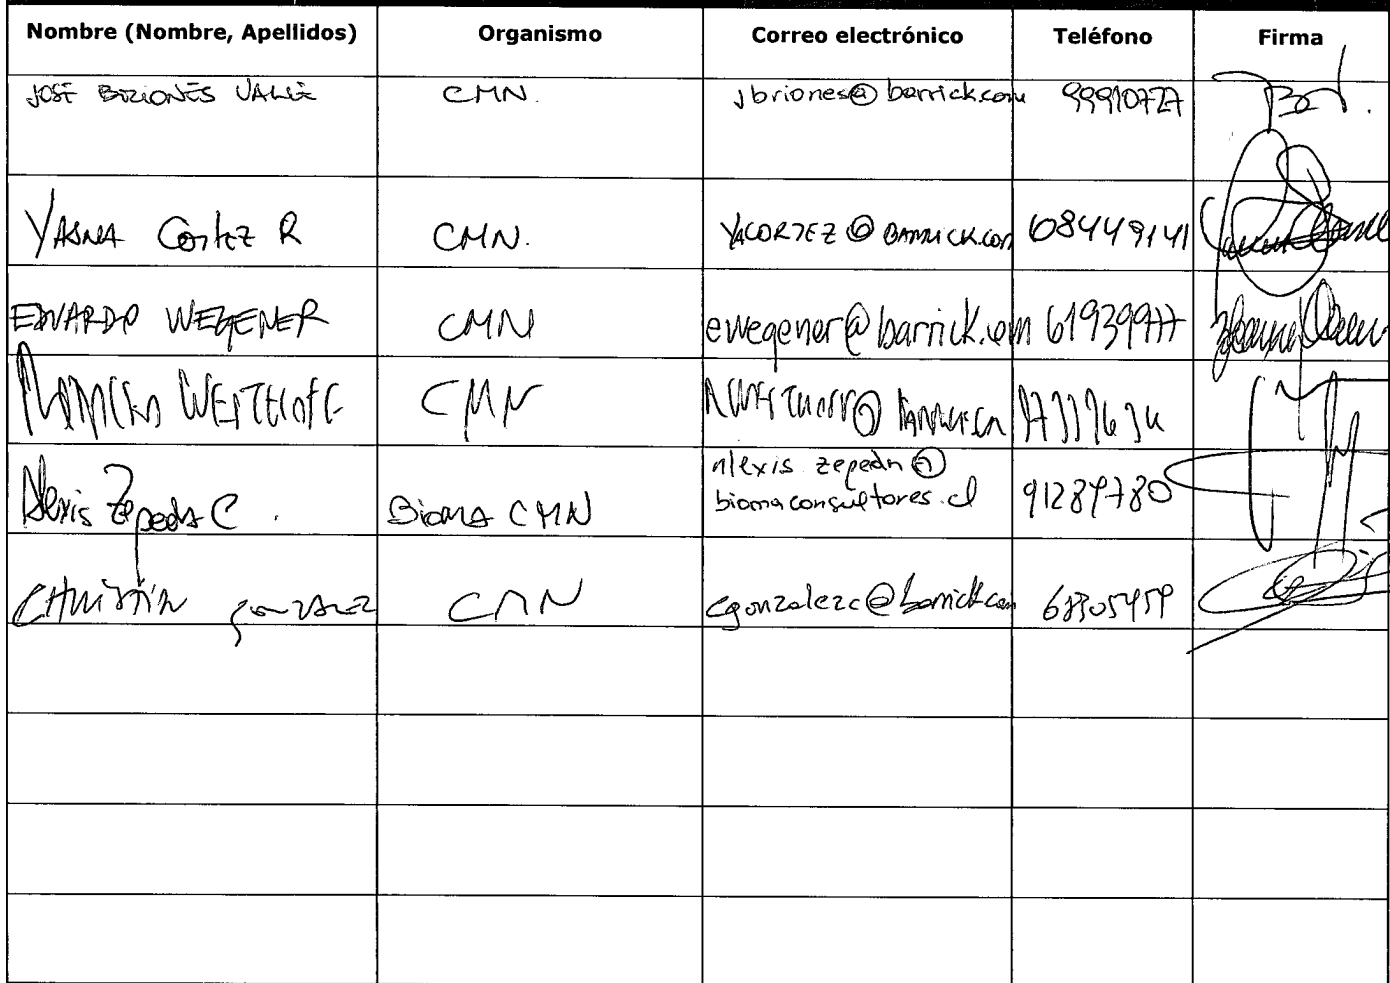 Nombre (Nombre, Apellidos) Organismo Correo electrónico Teléfono Firma
JOSÉ BRIONES VALLE CMN. jbriones@barrick.com 99910727
YASNA Cortez R CMN. YACORTEZ@BARRICK.com 68449141
EDUARDO WEGENER CMN ewegener@barrick.com 61939977
WESTHOFF CMN
Alexis Zepeda C. Bioma CMN alexis.zepeda@
biomaconsultores.cl 91289780
CHRISTIÁN GONZALEZ CMN cgonzalezc@barrick.com 68305459